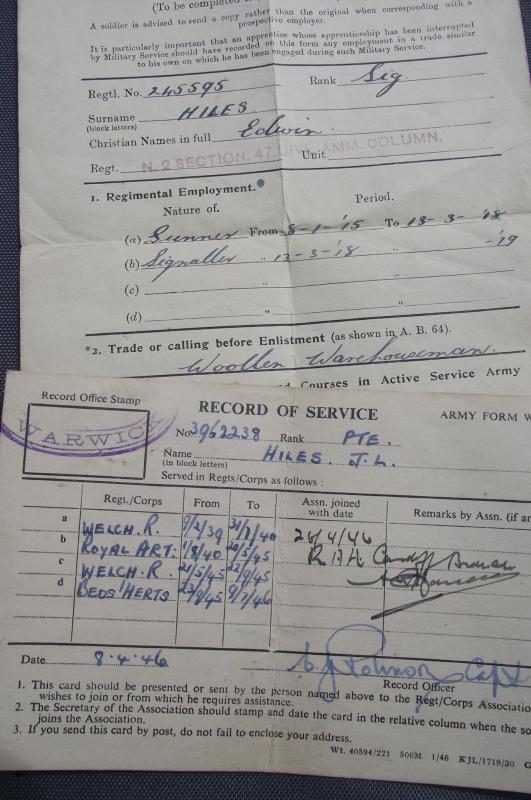 (To be completed
A soldier is advised to send a copy rather than the original when corresponding with a
prospective employer.
It is particularly important that an apprentice whose apprenticeship has been interrupted
by Military Service should have recorded on this form any employment in a trade similar
to his own on which he has been engaged during such Military Service.
Regtl. No. 245595 Rank Sig.
Surname HILES.
(block letters)
Christian Names in full Edwin.
Regt. N. 2 SECTION, 47 DIVL. AMM. COLUMN. Unit
1. Regimental Employment.
Nature of. Period.
(a) Gunner From 8-1-'15 To 13-3-'18
(b) Signaller " 13-3-'18 " -'19
(c) " "
(d) " "
*2. Trade or calling before Enlistment (as shown in A. B. 64).
Woollen Warehouseman.
Courses in Active Service Army
Record Office Stamp
WARWICK
RECORD OF SERVICE ARMY FORM W
No 3962238 Rank PTE.
Name HILES. J.L.
(in block letters)
Served in Regts/Corps as follows :
Regt./Corps From To Assn. joined with date Remarks by Assn. (if an
a WELCH. R. 9/2/39 31/7/40 28/4/46
b ROYAL ART. 1/8/40 20/5/45 R.A.A. Cardiff Branch
c WELCH. R. 21/5/45 22/9/45
d BEDS HERTS 23/9/45 9/7/46
Date 8.4.46 Capt
Record Officer
1. This card should be presented or sent by the person named above to the Regt/Corps Association
wishes to join or from which he requires assistance.
2. The Secretary of the Association should stamp and date the card in the relative column when the so
joins the Association.
3. If you send this card by post, do not fail to enclose your address.
Wt. 40594/221 500M 1/46 KJL/1719/30 G